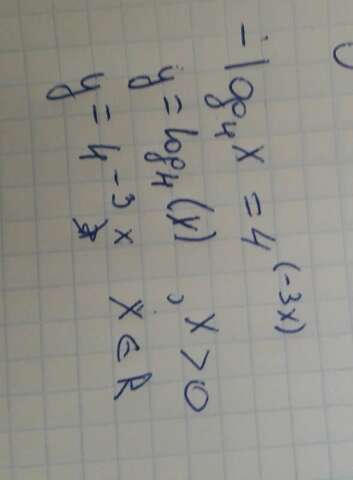 -log₄x = 4^(-3x)
y = log₄(x), x > 0
y = 4^-3x x ∈ R